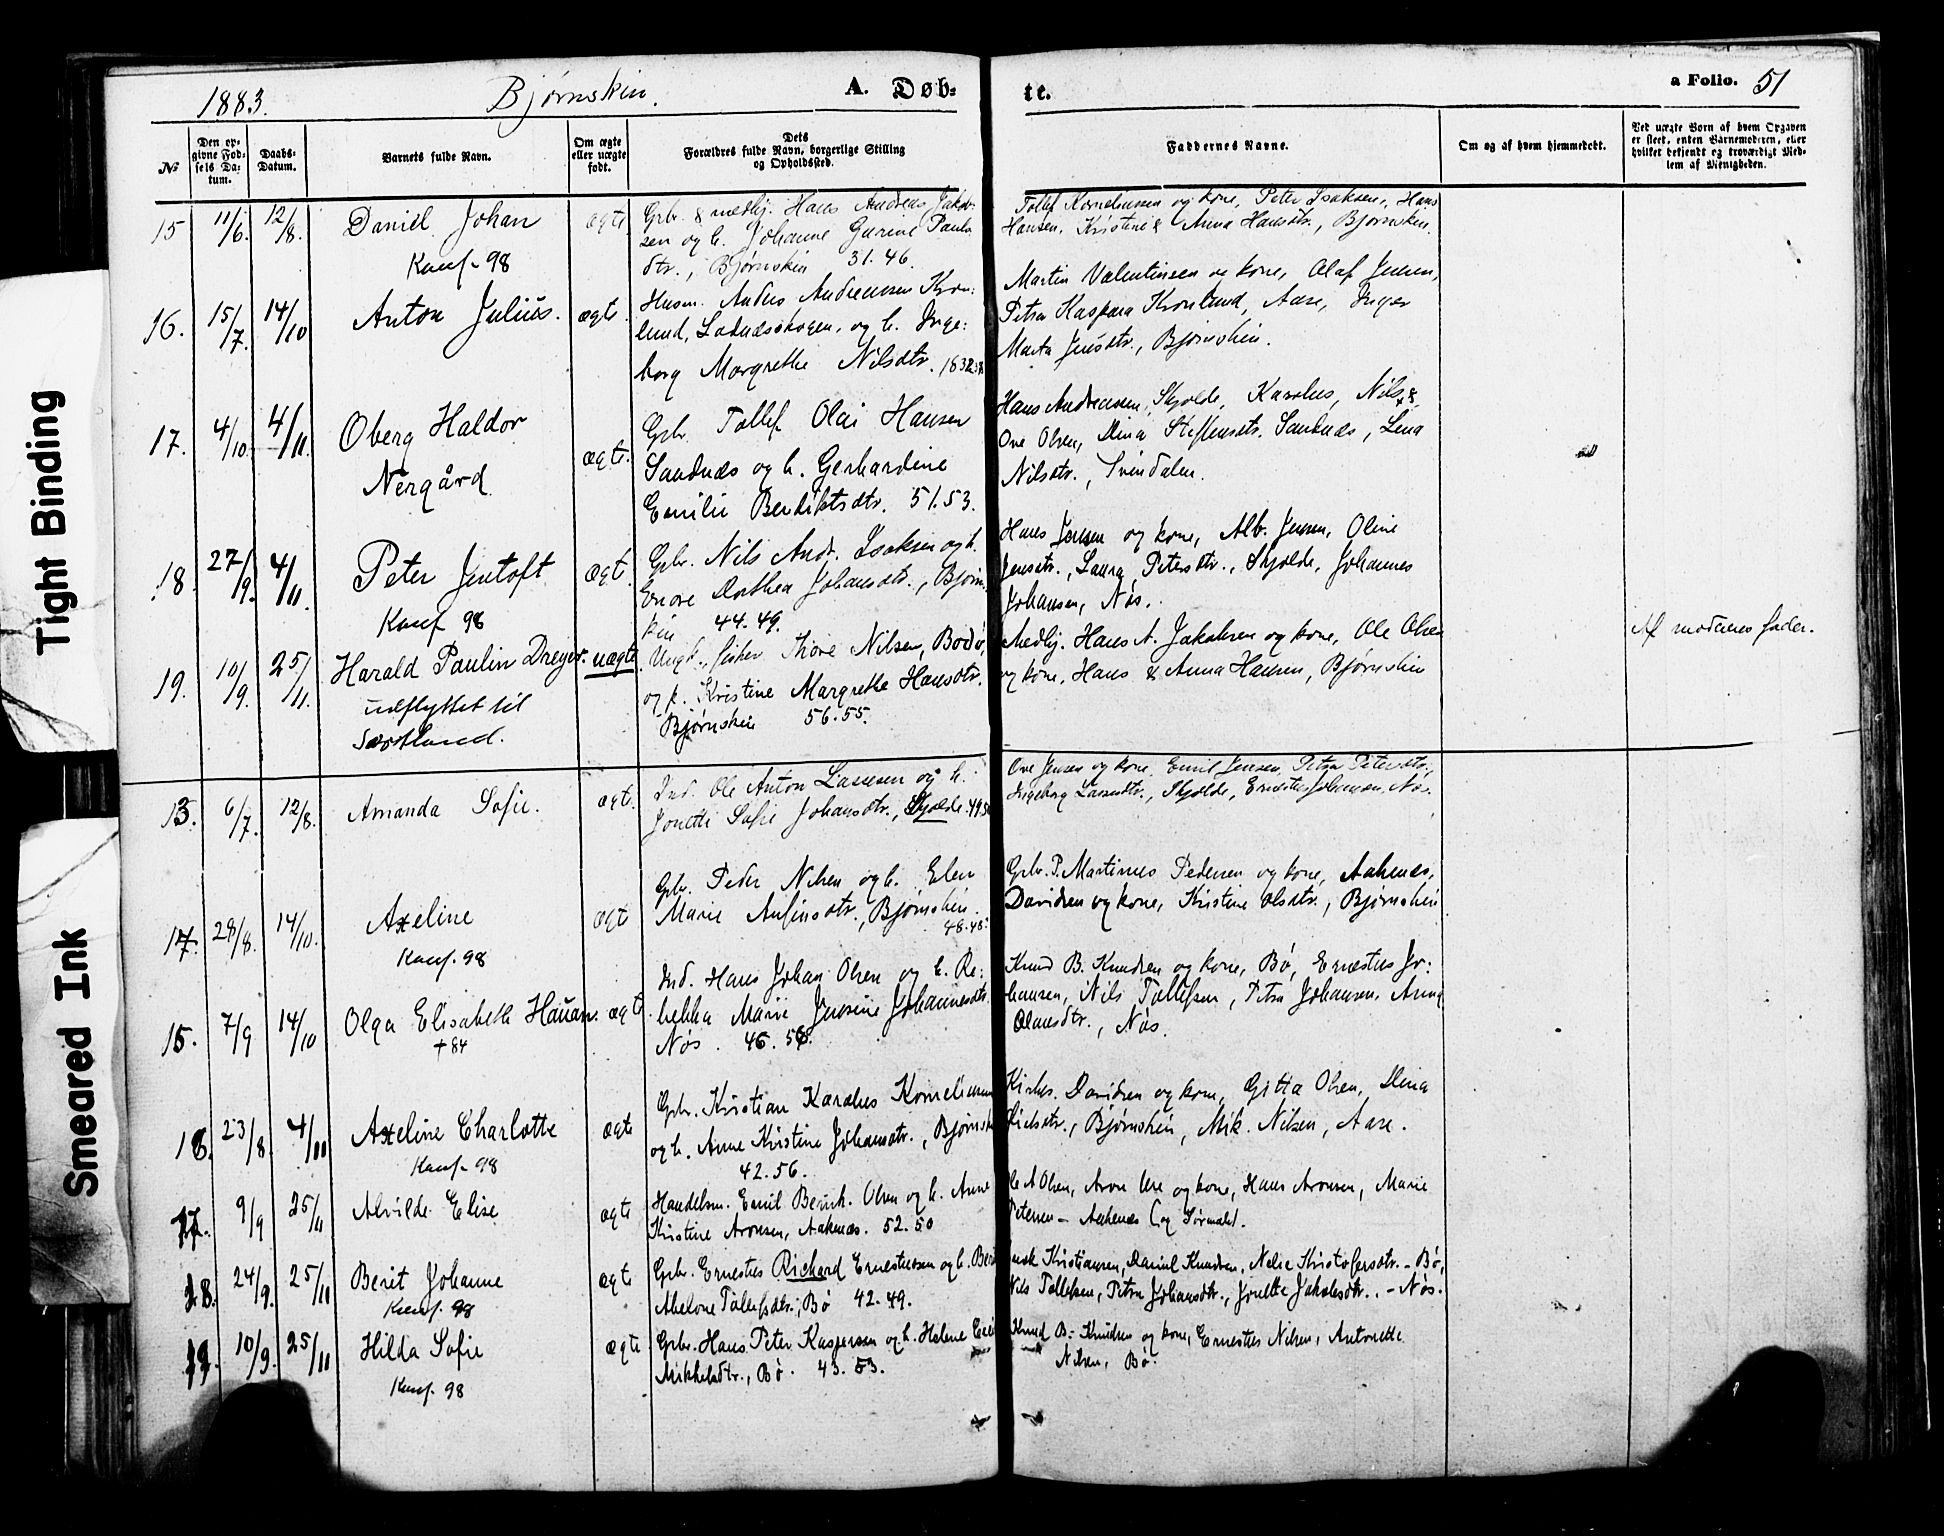 1883. Bjørnskin. A. Døb- te. a Folio. 51
№
Den op-
givne Fød-
sels Da-
tum.
Daabs-
Datum.
Barnets fulde Navn.
Om ægte
eller uægte
født.
Dets
Forældres fulde Navn, borgerlige Stilling
og Opholdssted.
Faddernes Navne.
Om og af hvem hjemmedøbt.
Ved uægte Børn af hvem Opgaven
er skeet, enten Barnemoderen, eller
hvilket bekjendt og troværdigt Med-
lem af Menigheden.
15 11/6. 12/8. Daniel Johan ægte
Konf. 98
Gbr. & medhj. Hans Andreas Jakob-
sen og h. Johanne Gurine Pauls
dtr., Bjørnskin 31. 46.
Tollef Korneliussen og kone, Peter Isaksen, Hans
Hansen, Kristine & Anna Hansdtr., Bjørnskin.
16. 15/7. 14/10 Anton Julius. ægte.
Husm. Anders Andreassen Kron-
lund, og h. Inge-
borg Margrethe Nilsdtr.
Martin Valentinsen og kone, Olaf Jensen,
Petra Kaspara Kronlund, Aase, Inger
Marta Jensdtr., Bjørnskin.
17. 4/10 4/11. Oberg Haldor
Nergård ægte.
Gbr. Tollef Olai Hansen
Sandnæs og h. Gerhardine
Emilie Bendiktsdtr. 51.53.
Hans Andreassen, Skjolde, Karolus, Nils &
Ove Olsen, Dina Steffensdtr. Sandnæs, Lina
Nilsdtr., Svindalen.
18. 27/9. 4/11. Peter Jentoft ægte
Konf 98
Gbr. Nils Andr. Isaksen og h.
Dorthea Johansdtr., Bjørn-
skin 44. 49.
Hans Jensen og kone, Alb. Jensen, Oline
Jensdtr., Laura Petersdtr., Skjolde, Johannes
Johansen, Nøs.
19. 10/9. 25/11. Harald Paulin Dreyer. uægte.
udflyttet til
Sortland.
Ungk., fisker Thore Nilsen, Bodø,
og p. Kristine Margrethe Hansdtr.
Bjørnskin 56. 55.
Medhj. Hans A. Jakobsen og kone, Ole Olsen
og kone, Hans & Anna Hansen, Bjørnskin
Af moderens fader.
13. 6/7. 12/8. Amanda Sofie. ægte.
Ind. Ole Anton Lassesen og h.
Jonette Sofie Johansdtr., Skjolde.
Ove Jensen og kone, Emil Jensen, Petra Petersdtr.,
Ingeborg Larsdtr., Skjolde, Ernestus Johansen, Nøs.
14. 28/8. 14/10. Axeline ægte
Konf. 98
Gbr. Peder Nilsen og h. Elen
Marie Anfinsdtr., Bjørnskin.
48. 48.
Gbr. P. Martinus Pedersen og kone, Aaknæs,
Davidsen og kone, Kristine Olsdtr., Bjørnskin
15. 7/9 14/10 Olga Elisabeth Hauan. ægte
† 84
Ind. Hans Johan Olsen og h. Re-
bekka Marie Jensine Johannesdtr.
Nøs. 46. 56.
Knud B. Knudsen og kone, Bø, Ernestus Jo-
hansen, Nils Tollefsen, Petra Johansen, Anna
Olausdtr., Nøs.
16. 23/8. 4/11 Axeline Charlotte ægte
Konf. 98
Gbr. Kristian Karolus Korneliussen
og h. Anne Kristine Johansdtr., Bjørnsk
42. 56.
Davidsen og kone, Gitta Olsen, Dina
Bjørnskin, Mik. Nilsen, Aase.
17. 9/9 25/11 Alvilde Elise ægte
Handelsm. Emil Olsen og h. Anne
Kristine Aronsen, Aaknæs. 52. 50
Ole A Olsen, Aron og kone, Hans Aronsen, Marie
Petersen – Aaknæs (og Sørmæla).
18. 24/9. 25/11 Berit Johanne ægte
Konf. 98
Gbr. Ernestus Richard Ernestussen og h. Berit
Abelone Tollefsdtr., Bø 42. 49.
Kristiansen, Daniel Knudsen, Nelie Kristofersdtr. – Bø,
Nils Tollefsen, Petra Johansdtr., Jonette Jakobsdtr. – Nøs.
19. 10/9. 25/11 Hilda Sofie ægte
Konf. 98
Gbr. Hans Peter Kaspersen og h. Helene
Mikkelsdtr., Bø. 43. 53.
Knud B. Knudsen og kone, Ernestus Nilsen, Antonette
Nilsen, Bø.
Tight Binding
Smeared Ink